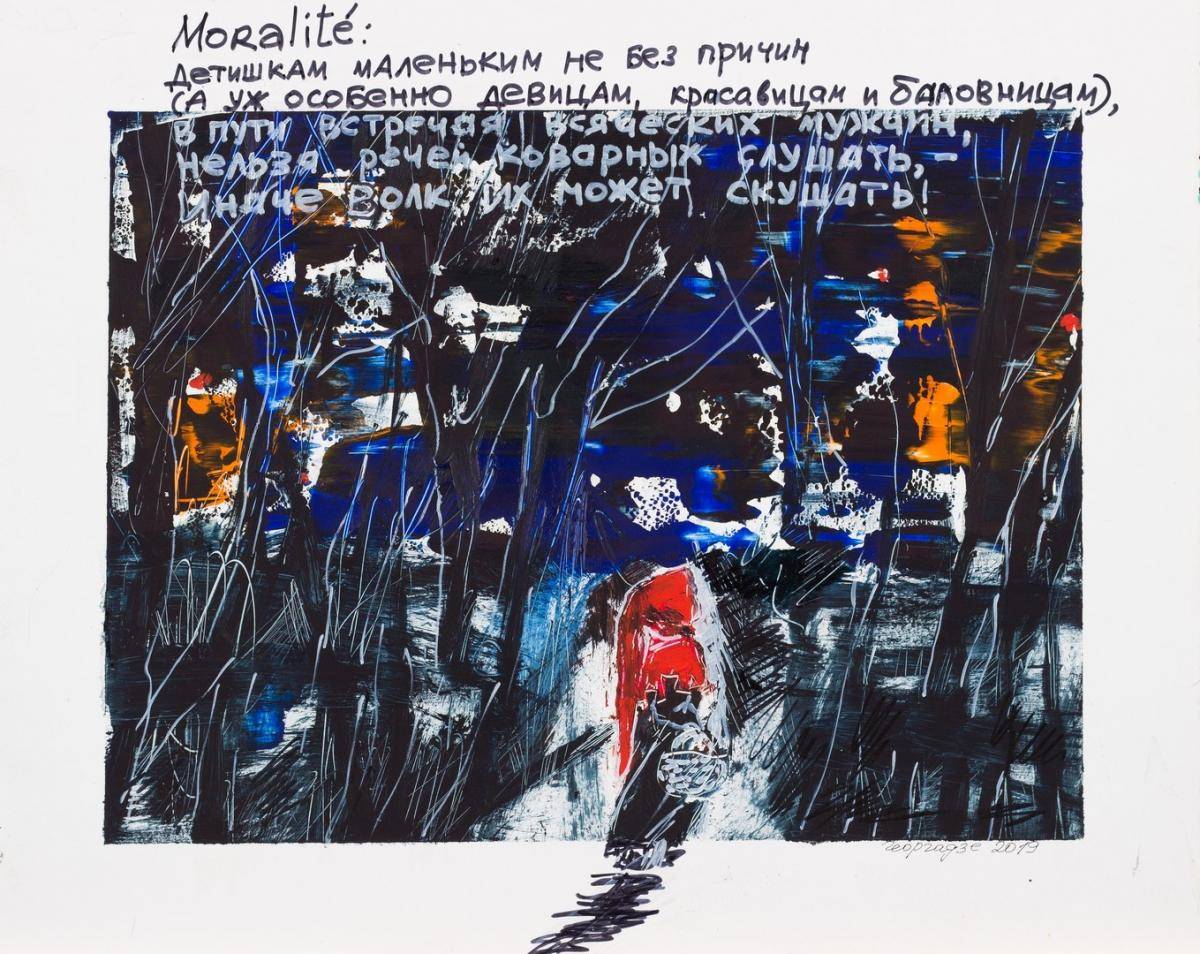 Moralité:
Детишкам маленьким не без причин
(А уж особенно девицам, красавицам и баловницам),
в пути встречая всяческих мужчин,
нельзя речей коварных слушать, –
иначе волк их может скушать!
Георгадзе 2019